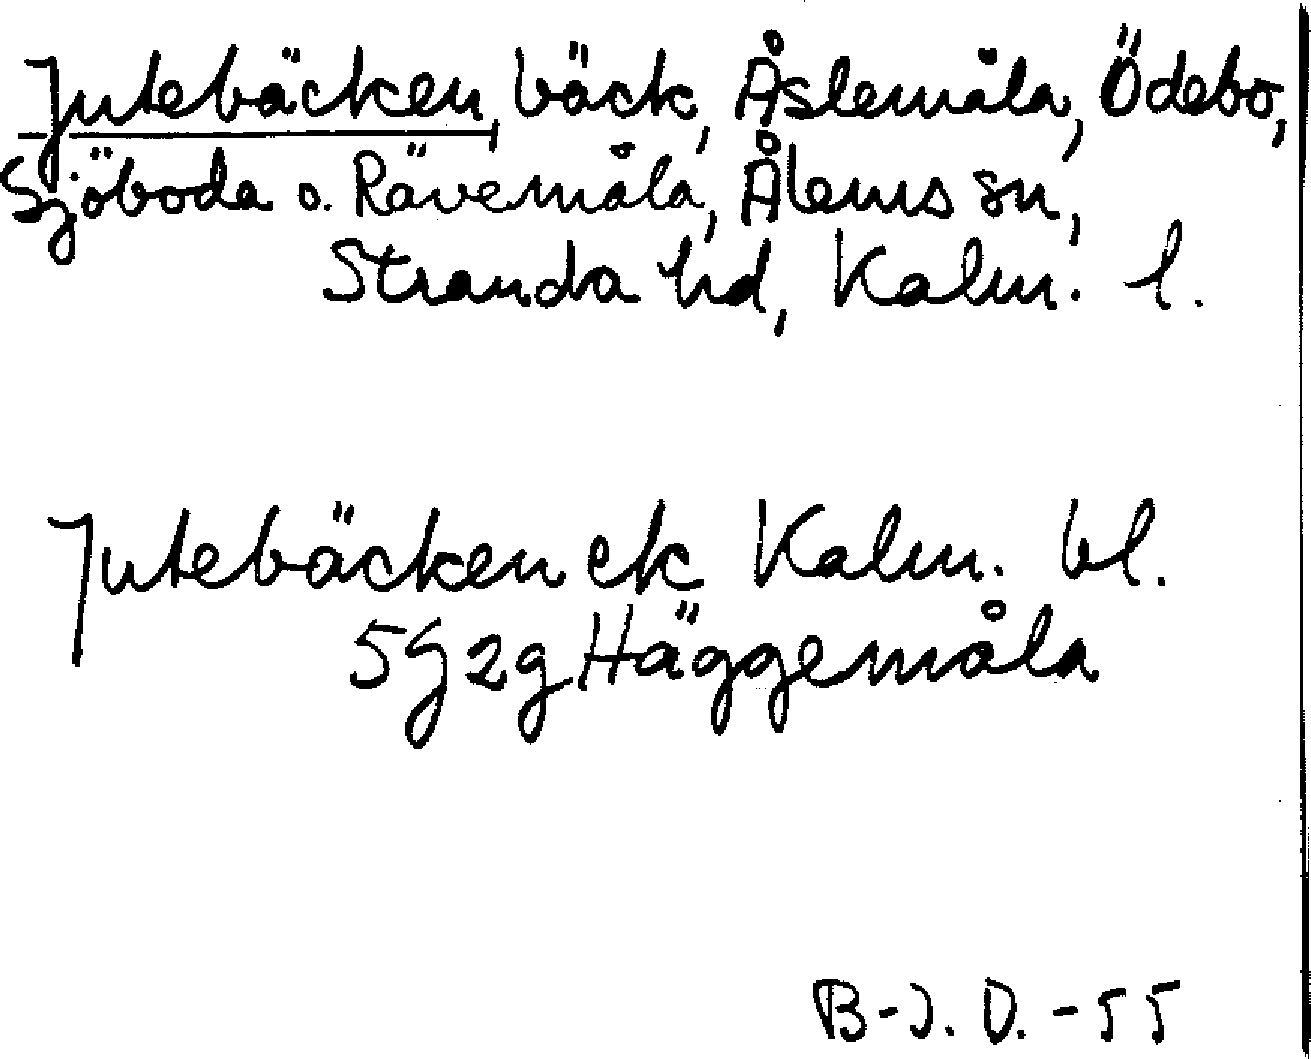 Jutebäcken, bäck, Åslemåla, Ödebo,
Sjöboda o. Rävemåla, Ålems sn,
Stranda hd, Kalm. l.
Jutebäcken ek Kalm. bl.
5G2g Häggemåla
B-J. D. -55